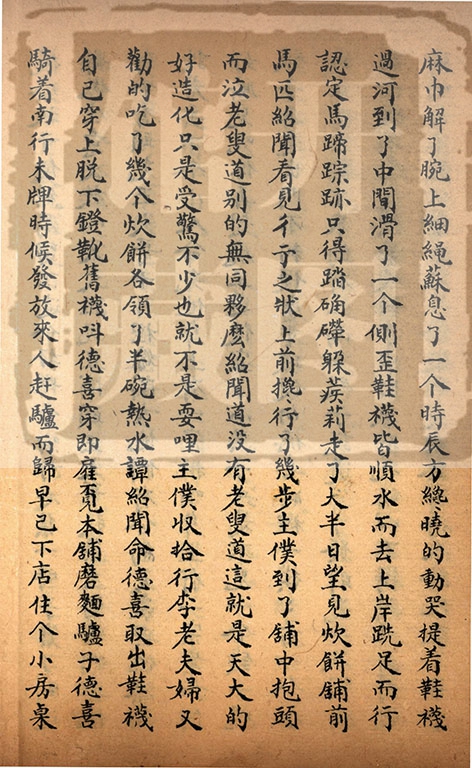 麻巾解了腕上細繩蘇息了一个時辰方纔曉的動哭提着鞋襪
過河到了中間滑了一个側歪鞋襪皆順水而去上岸跣足而行
認定馬蹄踪跡只得踏确犖躲蒺莉走了大半日望見炊餅鋪前
馬匹紹聞看見彳亍之狀上前攙行了幾步主僕到了鋪中抱頭
而泣老叟道別的無同夥麽紹聞道没有老叟道這就是天大的
好造化只是受驚不少也就不是耍哩主僕収拾行李老夫婦又
勸的吃了幾个炊餅各領了半碗熱水譚紹聞命德喜取出鞋襪
自己穿上脱下鐙靴舊襪呌德喜穿即雇覔本鋪磨麵驢子德喜
騎着南行未牌時候發放來人赶驢而歸早已下店住个小房桌